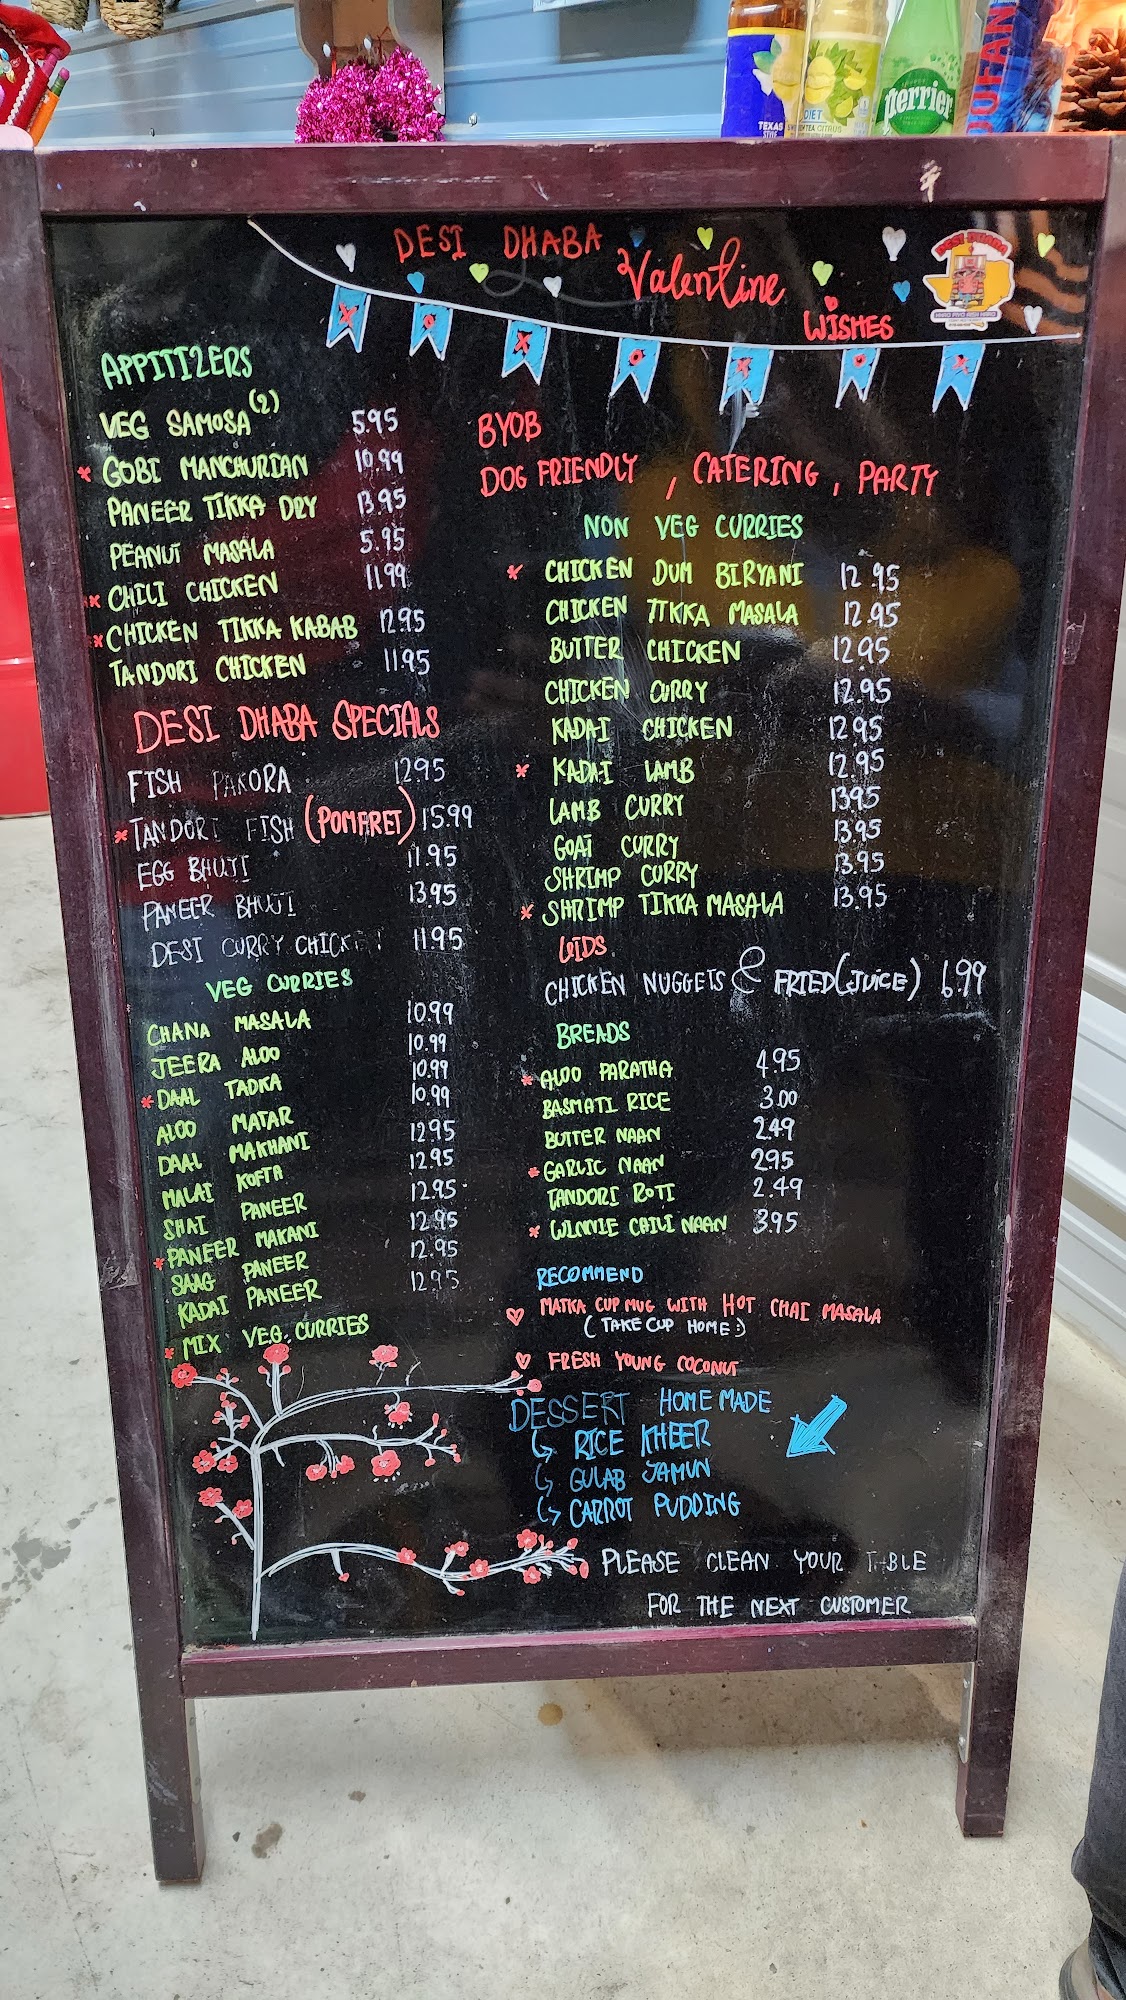 TEXAS
STYLE
DIET
TEA CITRUS
Perrier
DESI DHABA
Valentine
WISHES
DESI DHABA
APPITIZERS
VEG SAMOSA (2) 5.95
* GOBI MANCHURIAN 10.99
PANEER TIKKA DRY 13.95
PEANUT MASALA 5.95
* CHILI CHICKEN 11.99
* CHICKEN TIKKA KABAB 12.95
TANDORI CHICKEN 11.95
DESI DHABA SPECIALS
FISH PAKORA 1295
* TANDORI FISH (POMFRET) 15.99
EGG BHUJI 11.95
PANEER BHUJI 13.95
DESI CURRY CHICKEN 11.95
VEG CURRIES
CHANA MASALA 10.99
JEERA ALOO 10.99
* DAAL TADKA 10.99
ALOO MATAR 10.99
DAAL MAKHANI 12.95
MALAI KOFTA 12.95
SHAI PANEER 12.95
* PANEER MAKANI 12.95
SAAG PANEER 12.95
KADAI PANEER 12.95
* MIX VEG CURRIES
BYOB
DOG FRIENDLY, CATERING, PARTY
NON VEG CURRIES
* CHICKEN DUM BIRYANI 12.95
CHICKEN TIKKA MASALA 12.95
BUTTER CHICKEN 12.95
CHICKEN CURRY 12.95
KADAI CHICKEN 12.95
* KADAI LAMB 12.95
LAMB CURRY 1395
GOAT CURRY 13.95
SHRIMP CURRY 13.95
* SHRIMP TIKKA MASALA 13.95
KIDS
CHICKEN NUGGETS & FRIED (JUICE) 6.99
BREADS
* ALOO PARATHA 4.95
BASMATI RICE 3.00
BUTTER NAAN 2.49
* GARLIC NAAN 295
TANDORI ROTI 2.49
* WINNIE CHILI NAAN 3.95
RECOMMEND
♡ MATKA CUP MUG WITH HOT CHAI MASALA
(TAKE CUP HOME :)
♡ FRESH YOUNG COCONUT
DESSERT HOME MADE
↳ RICE KHEER
↳ GULAB JAMUN
↳ CARROT PUDDING
PLEASE CLEAN YOUR TABLE
FOR THE NEXT CUSTOMER